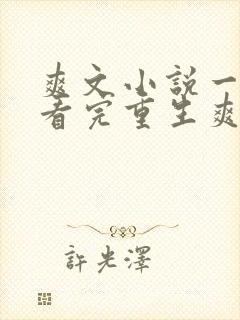 爽文小說一
看完重生爽
許光澤